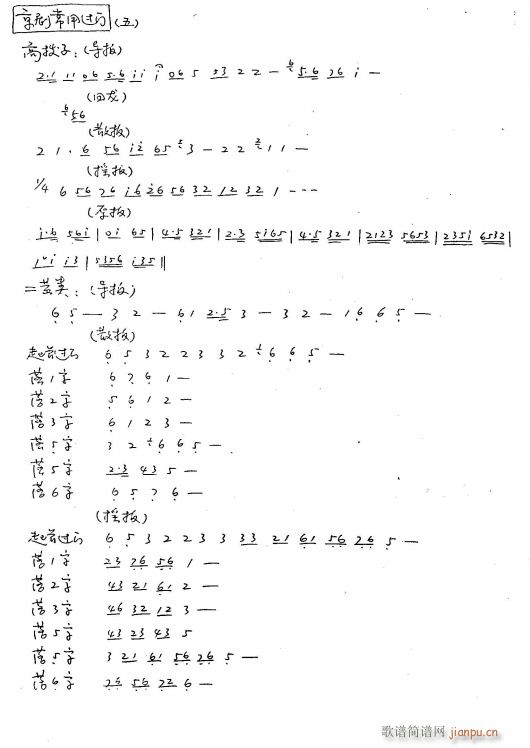 京剧常用过门(五)
高拨子：(导板)
2·1 11 06 5·6 i i i 0 6 5 5 3 2 2 — 6 5·6 26 i —
(回龙)
6 56
(散板)
2 1 · 6 56 i2 65 5 3 — 2 2 2 1 1 —
(摇板)
1/4 6 56 26 i6 26 56 32 12 32 1 - - -
(原板)
i·6 56i | 0i 65 | 4·5 321 | 2·3 5i65 | 4·5 321 | 2123 5653 | 235i 6532 |
i 3 | 5356 i35 ||
二黄类：(导板)
6 5 — 3 2 — 61 2·5 3 — 3 2 — 1 6 6 5 —
(散板)
起首过门 6 5 3 2 2 3 3 2 6 6 5 —
落1字 6 7 6 1 —
落2字 5 6 1 2 —
落3字 6 1 2 3 —
落5字 3 2 6 6 5 —
落5字 2·3 43 5 —
落6字 6 5 7 6 —
(摇板)
起首过门 6 5 3 2 2 3 3 33 21 61 56 26 5 —
落1字 23 76 56 1 —
落2字 43 21 61 2 —
落3字 46 32 12 3 —
落5字 43 23 43 5
落5字 3 21 61 56 26 5 —
落6字 26 56 72 6 —
歌谱简谱网
jianpu.cn